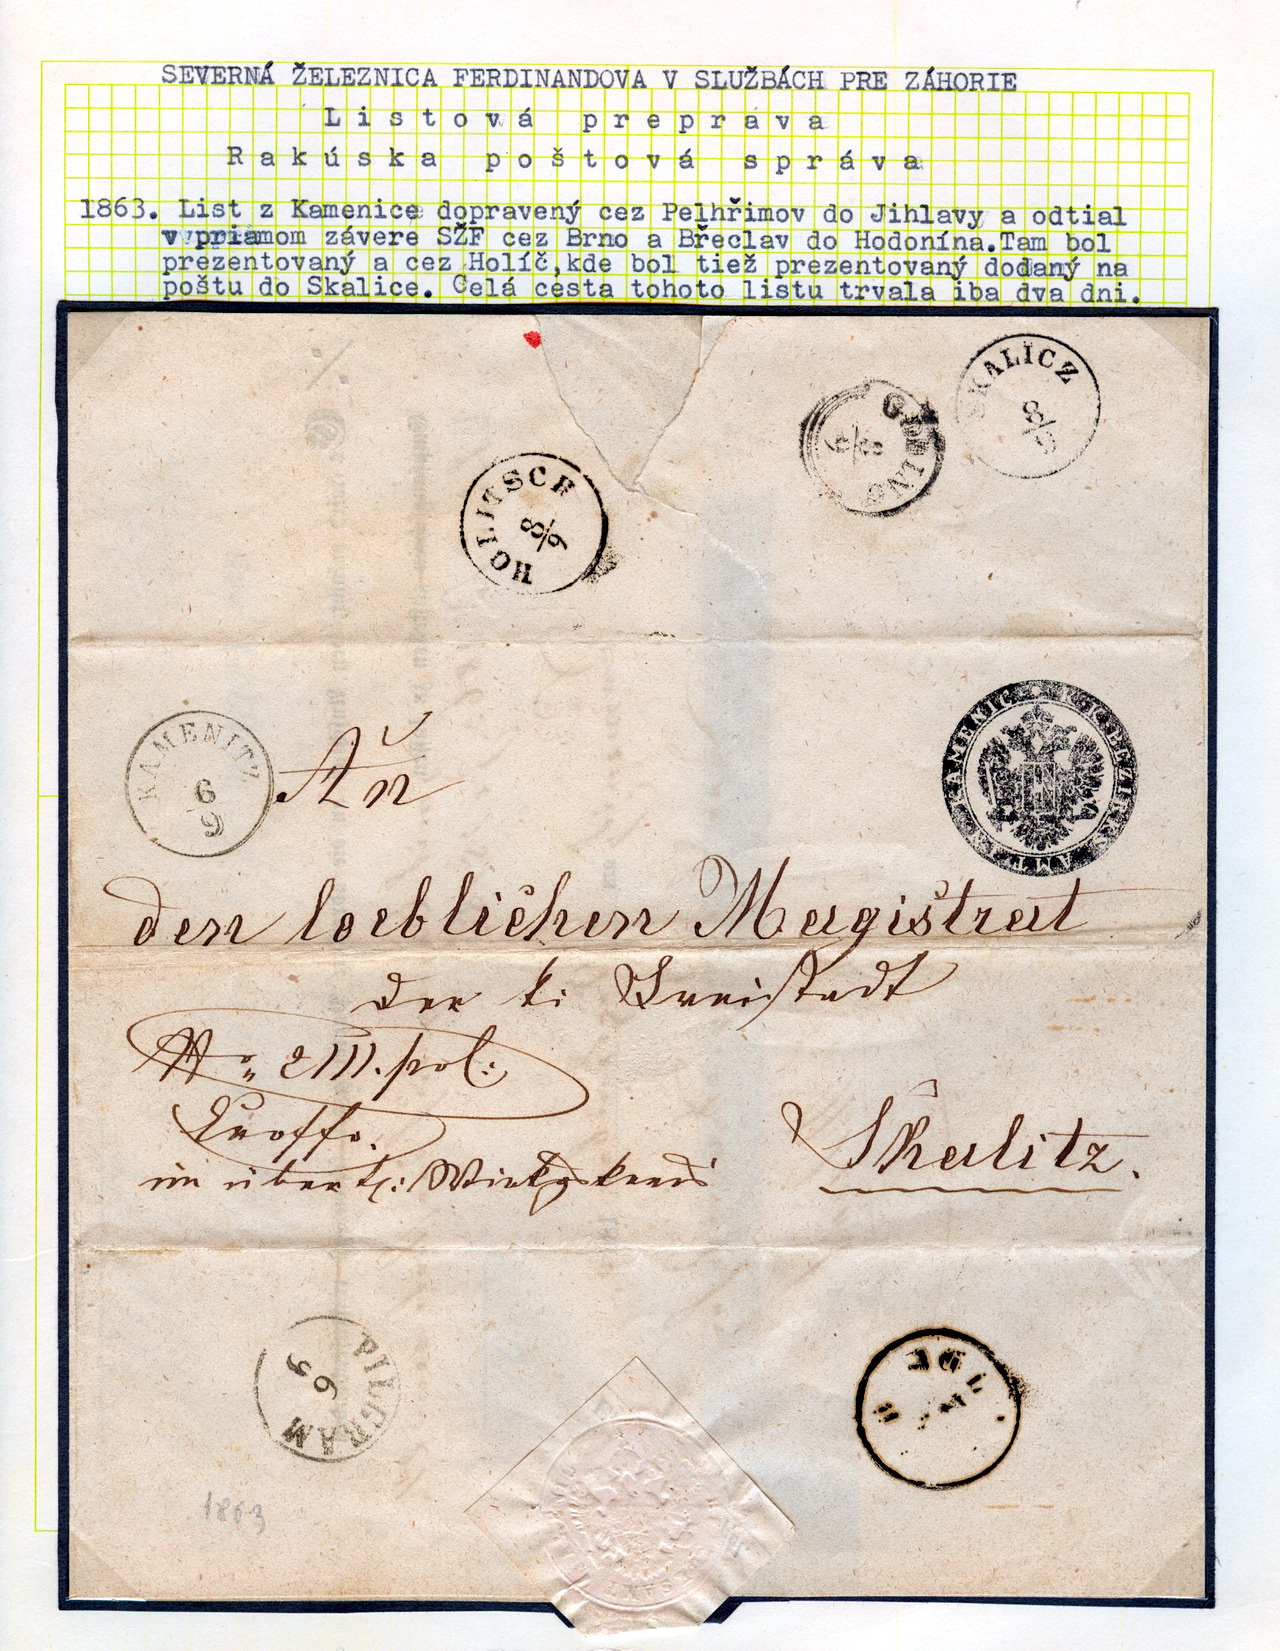 SEVERNÁ ŽELEZNICA FERDINANDOVA V SLUŽBÁCH PRE ZÁHORIE
Listová preprava
Rakúska poštová správa
1863. List z Kamenice dopravený cez Pelhřimov do Jihlavy a odtial
v priamom závere SŽF cez Brno a Břeclav do Hodonína.Tam bol
prezentovaný a cez Holíč,kde bol tiež prezentovaný dodaný na
poštu do Skalice. Celá cesta tohoto listu trvala iba dva dni.
SKALICZ
8/9
GÖDING
8/9
HOLITSCH
8/9
KAMENITZ
6/9
K.K. BEZIRKS AMT KAMENIC
An
den loeblichen Magistrat
der k: Freistadt
No 2111. pol:
Skalitz.
im übert: Wirkgskreis
PILGRAM
6 9
IGL
1863